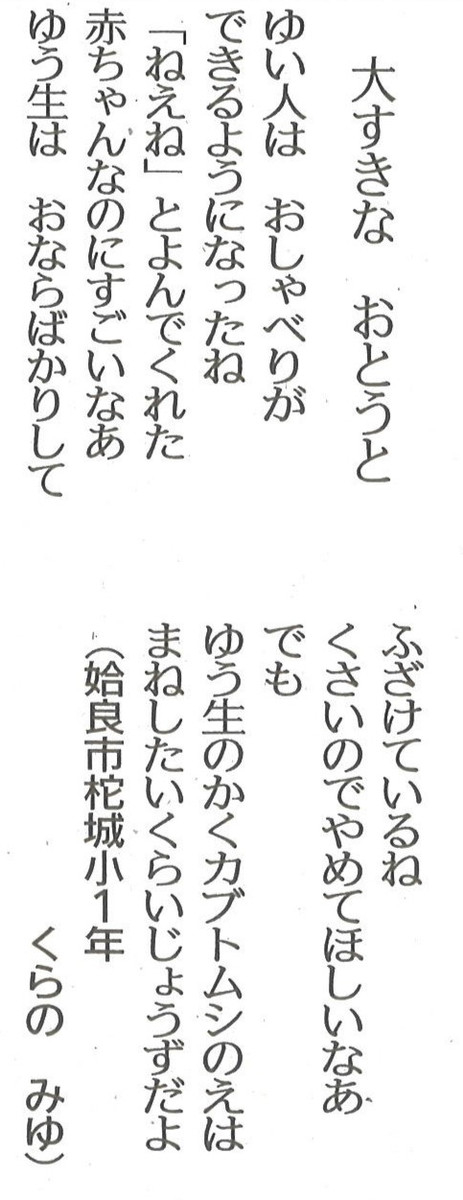 大すきな　おとうと
ゆい人は　おしゃべりが
できるようになったね
「ねえね」とよんでくれた
赤ちゃんなのにすごいなあ
ゆう生は　おならばかりして
ふざけているね
くさいのでやめてほしいなあ
でも
ゆう生のかくカブトムシのえは
まねしたいくらいじょうずだよ
（姶良市柁城小１年
くらの　みゆ）